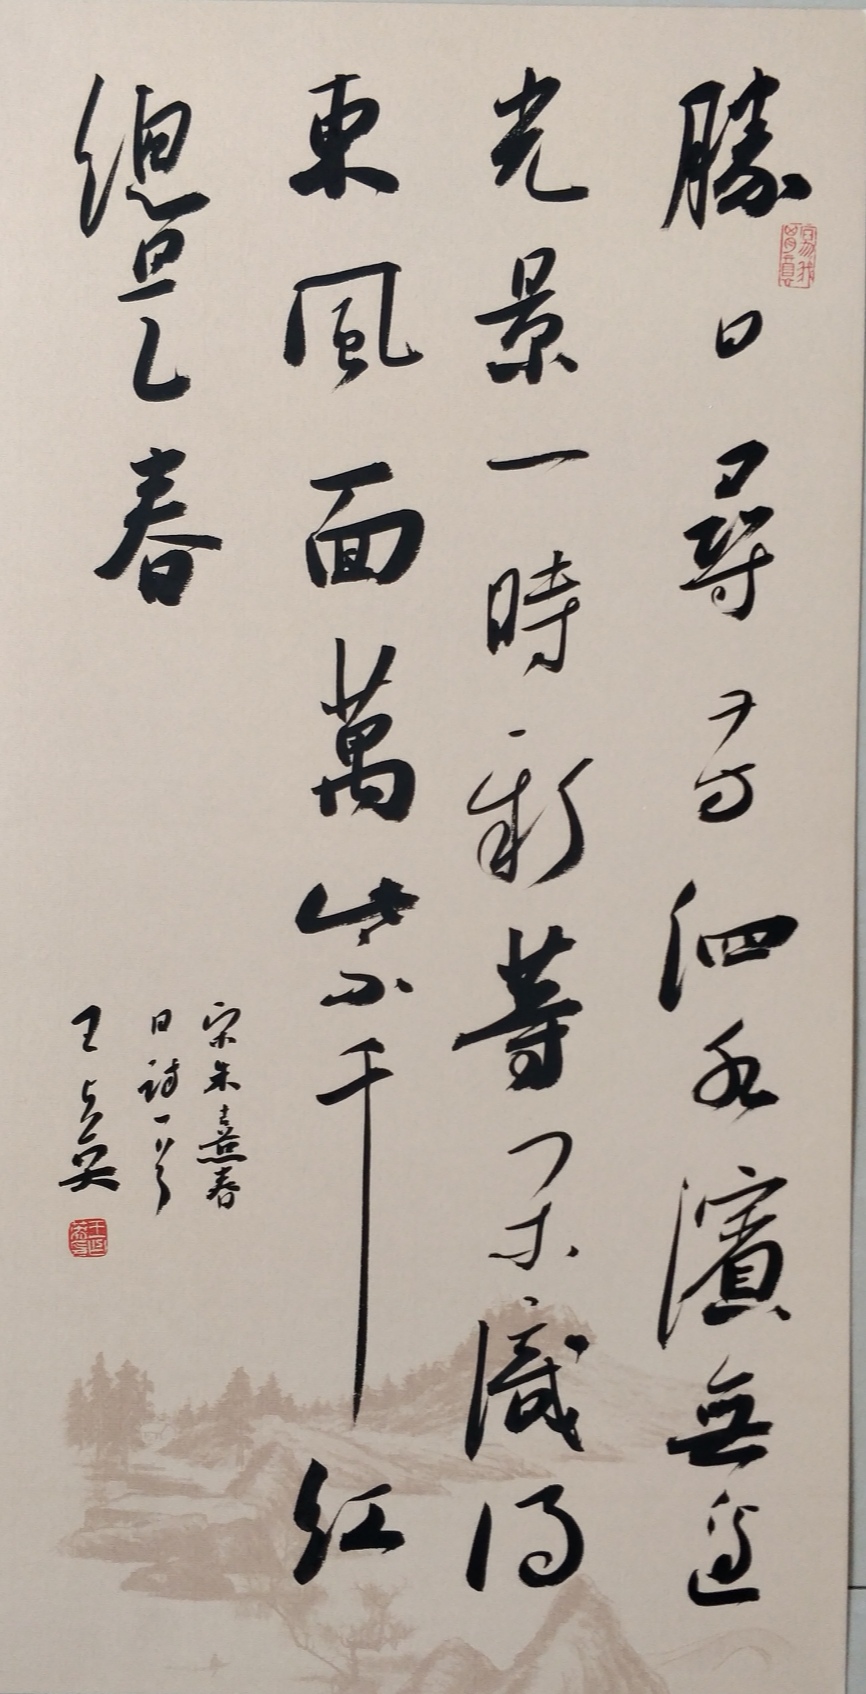 勝日尋芳泗水濱無邊
光景一時新等閑識得
東風面萬紫千紅
總是春
宋朱熹春
日詩一首
王